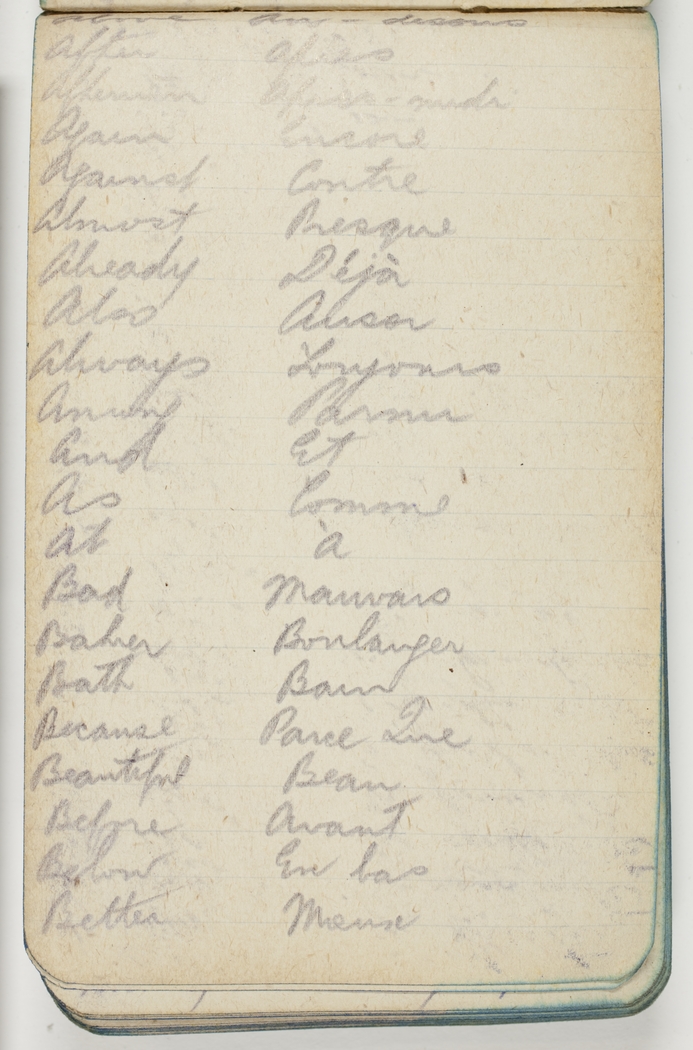 Above Au-dessus
After Après
Afternoon Après-midi
Again Encore
Against Contre
Almost Presque
Already Déjà
Also Aussi
Always Toujours
Among Parmi
And Et
As Comme
At à
Bad Mauvais
Baker Boulanger
Bath Bain
Because Parce Que
Beautiful Beau
Before Avant
Below En bas
Better Mieux